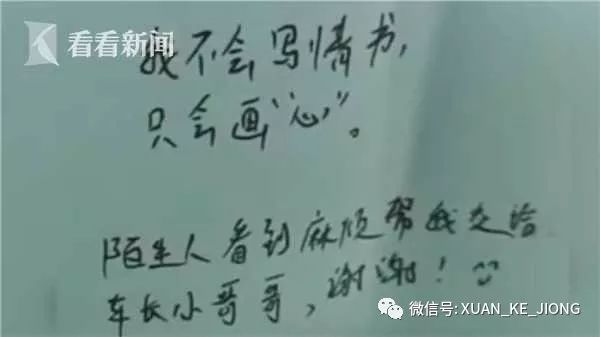 看看新闻
我不会写情书，
只会画“心”。
陌生人看到麻烦帮我交给
车长小哥哥，谢谢！
微信号: XUAN_KE_JIONG